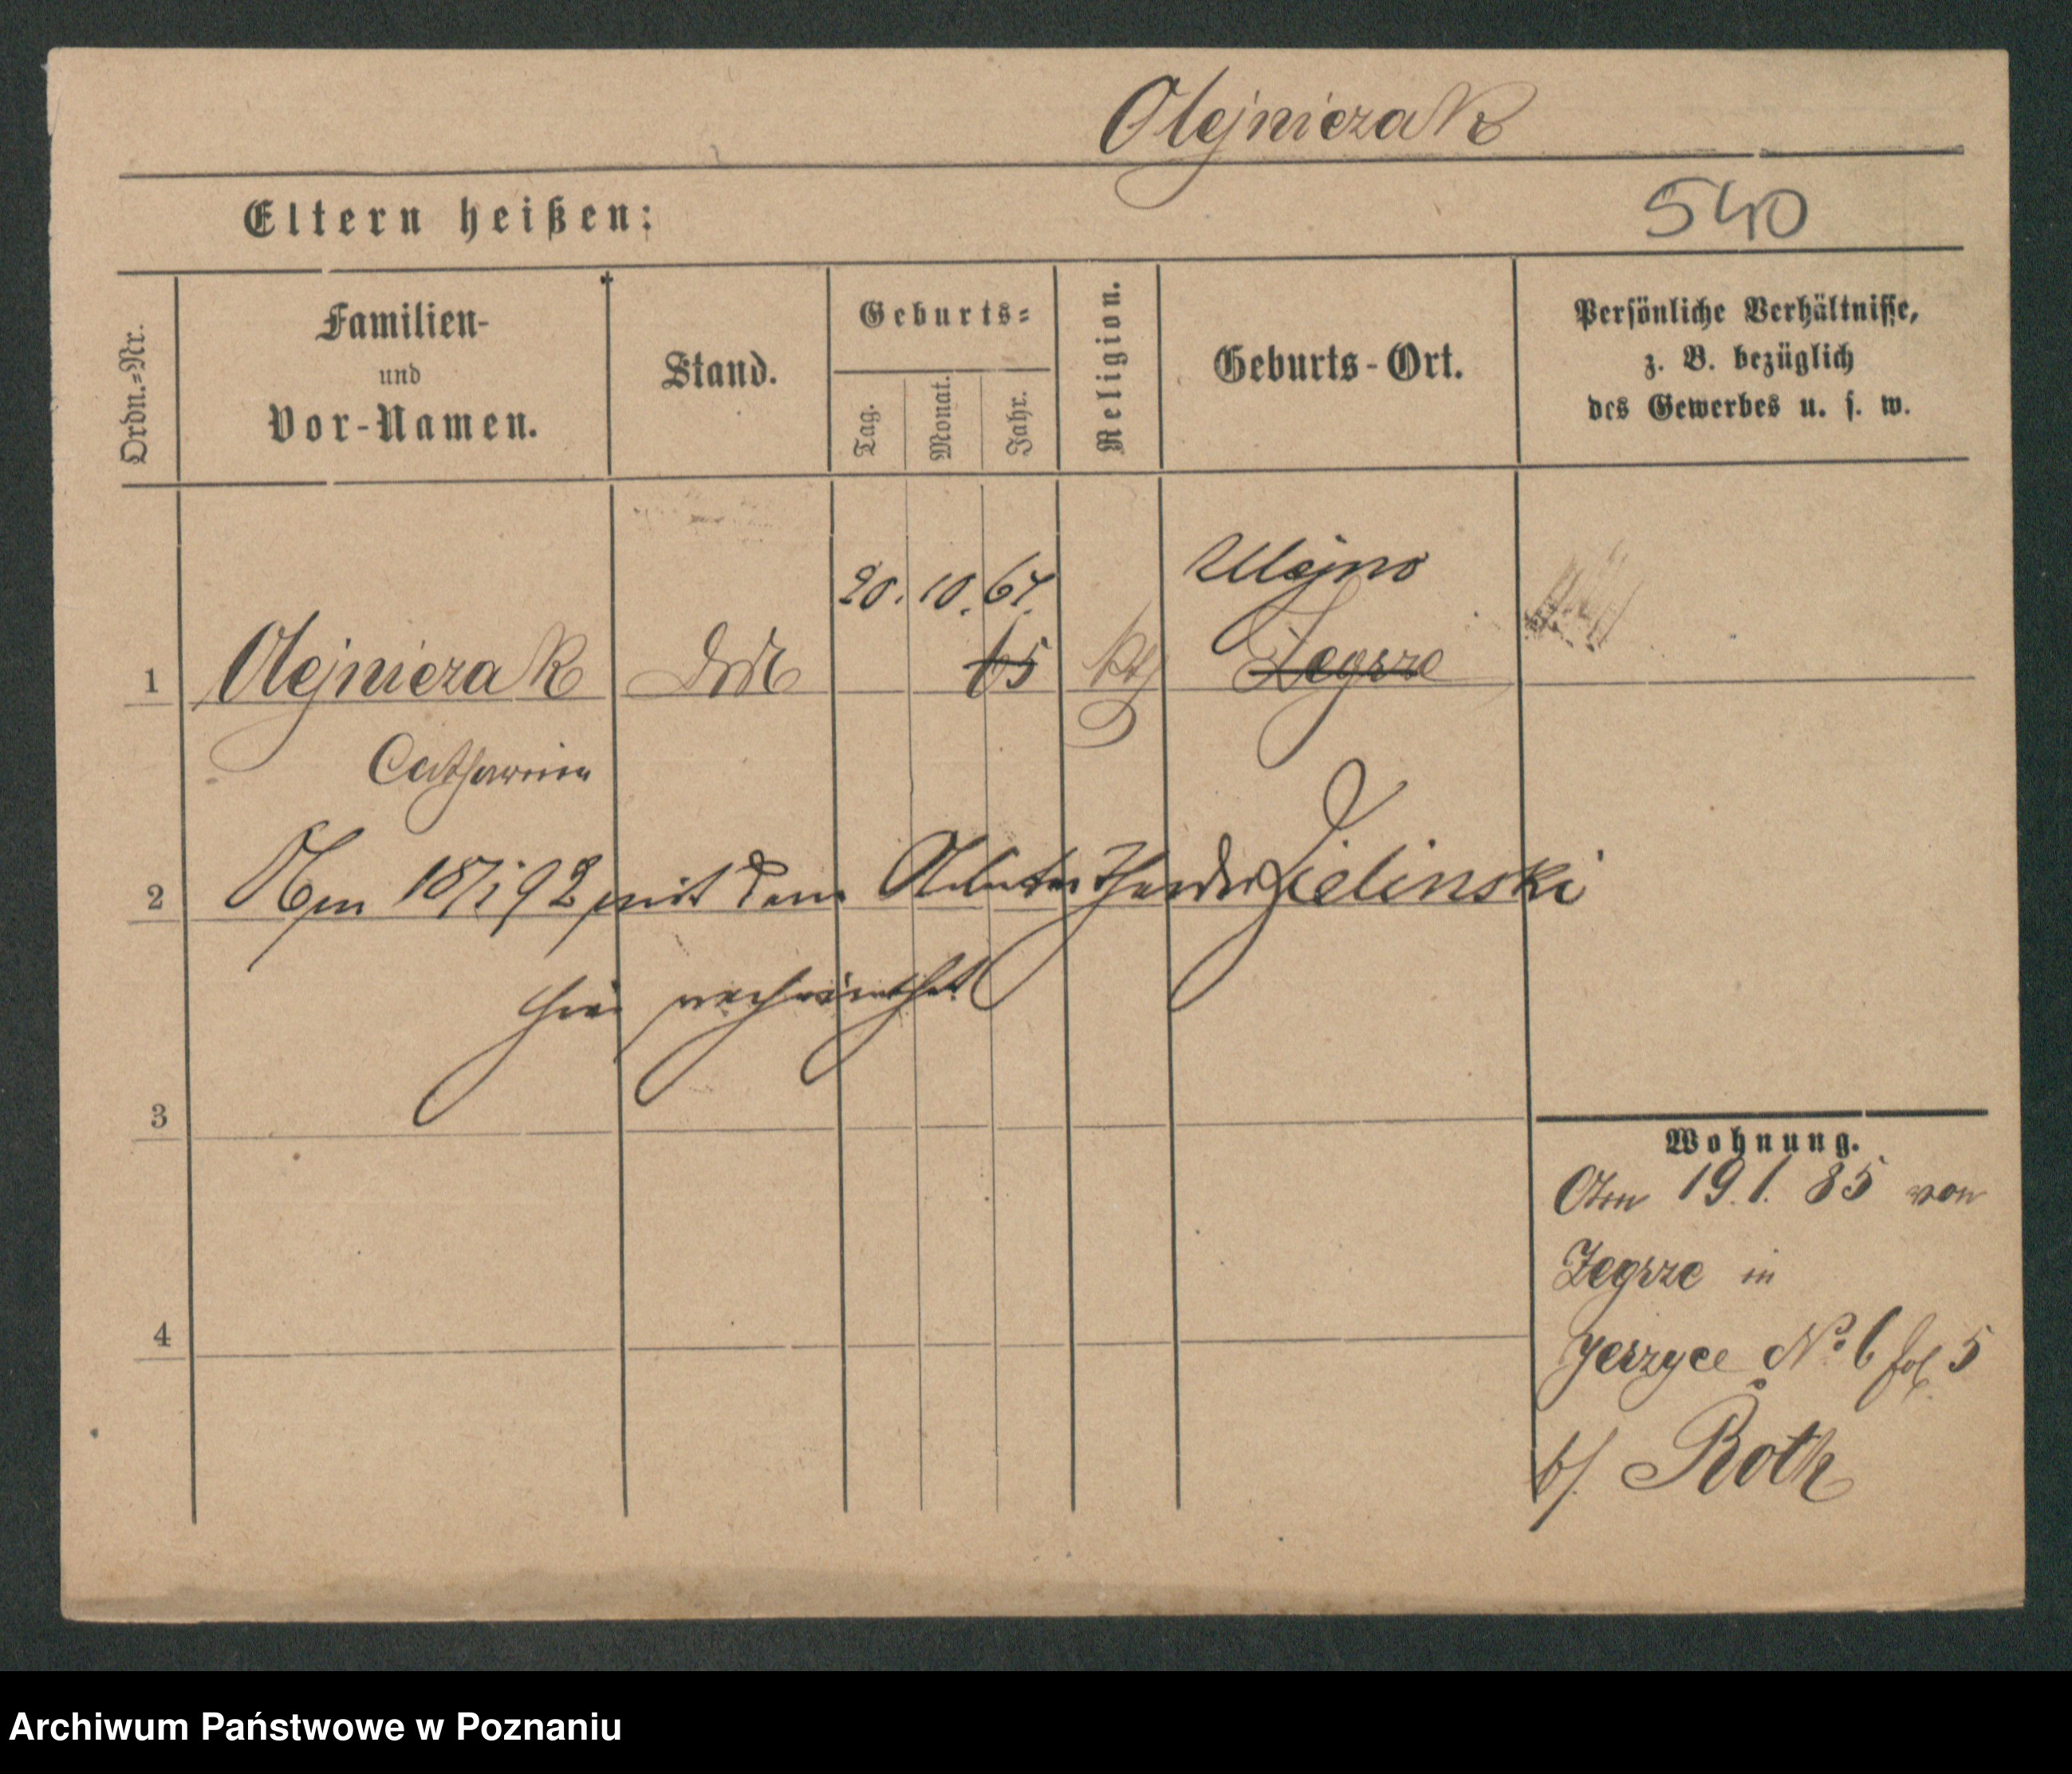 Olejniczak
Eltern heißen:
540
Ordn.=Nr.
Familien-
und
Vor-Namen.
Stand.
Geburts=
Tag.
Monat.
Jahr.
Religion.
Geburts-Ort.
Persönliche Verhältnisse,
z. B. bezüglich
des Gewerbes u. s. w.
20. 10. 64.
1 Olejniczak 65 kth Zegrze
Catharina
2 Am 18/1 92 mit dem Arbeiter Zielinski
hier verheirathet
3
Wohnung.
Am 19.1. 85 von
Zegrze in
4
Jerzyce No 6 fol 5
b/. Roth
Archiwum Państwowe w Poznaniu